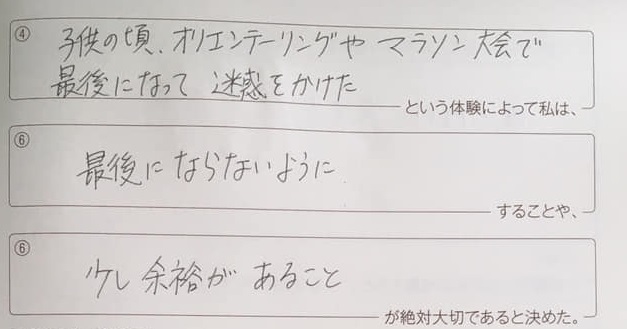 ④ 子供の頃、オリエンテーリングや マラソン大会で
最後になって 迷惑をかけた
という体験によって私は、
⑥
最後に ならないように
することや、
⑥
少し余裕が あること
が絶対大切であると決めた。